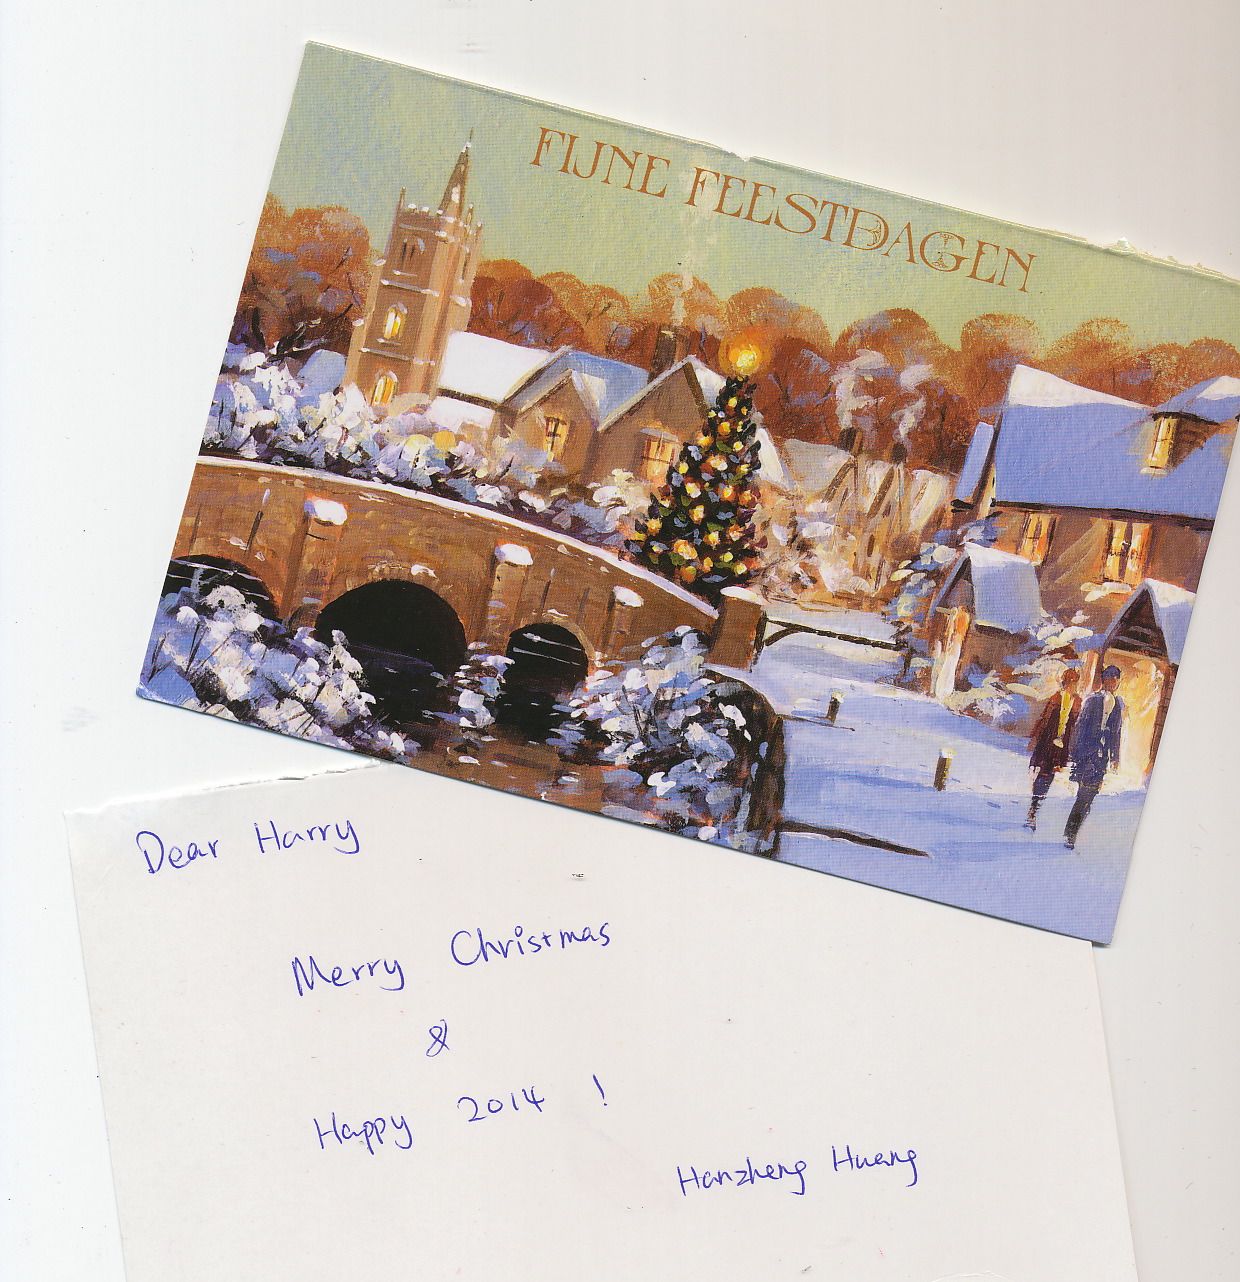 FIJNE FEESTDAGEN
Dear Harry
Merry Christmas
&
Happy 2014 !
Hanzheng Huang